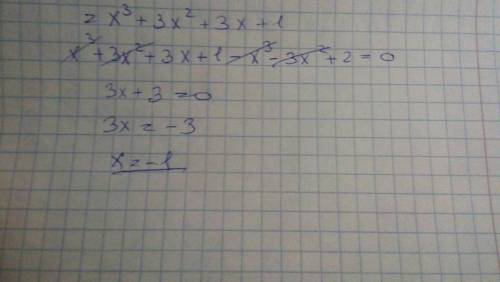 = x³ + 3x² + 3x + 1
x³ + 3x² + 3x + 1 - x³ - 3x² + 2 = 0
3x + 3 = 0
3x = -3
x = -1